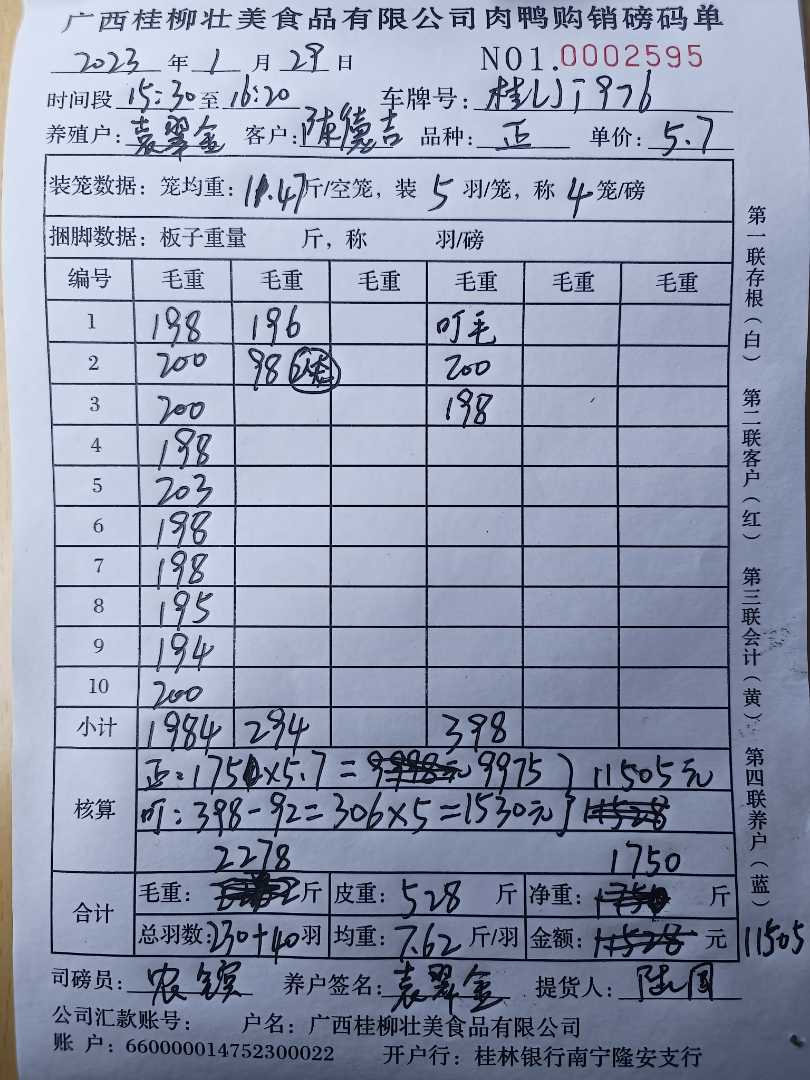 广西桂柳壮美食品有限公司肉鸭购销磅码单
2023 年 1 月 29 日 NO1.0002595
时间段 15:30 至 16:20 车牌号: 976
养殖户: 袁翠金 客户: 陈德吉 品种: 正 单价: 5.7
装笼数据: 笼均重: 11.47 斤/空笼, 装 5 羽/笼, 称 4 笼/磅
捆脚数据: 板子重量 斤, 称 羽/磅
编号 毛重 毛重 毛重 毛重 毛重 毛重
1 198 196 叮毛
2 200 98 200
3 200 198
4 198
5 203
6 198
7 198
8 195
9 194
10 200
小计 1984 294 398
核算
正: 1750×5.7= 9975 } 11505元
叮: 398-92=306×5=1530元
2278 1750
合计
毛重: 斤 皮重: 528 斤 净重: 斤
总羽数: 230+40 羽 均重: 7.62 斤/羽 金额: 元 11505
司磅员: 养户签名: 袁翠金 提货人:
公司汇款账号: 户名: 广西桂柳壮美食品有限公司
账 户: 660000014752300022 开户行: 桂林银行南宁隆安支行
第一联存根(白) 第二联客户(红) 第三联会计(黄) 第四联养户(蓝)